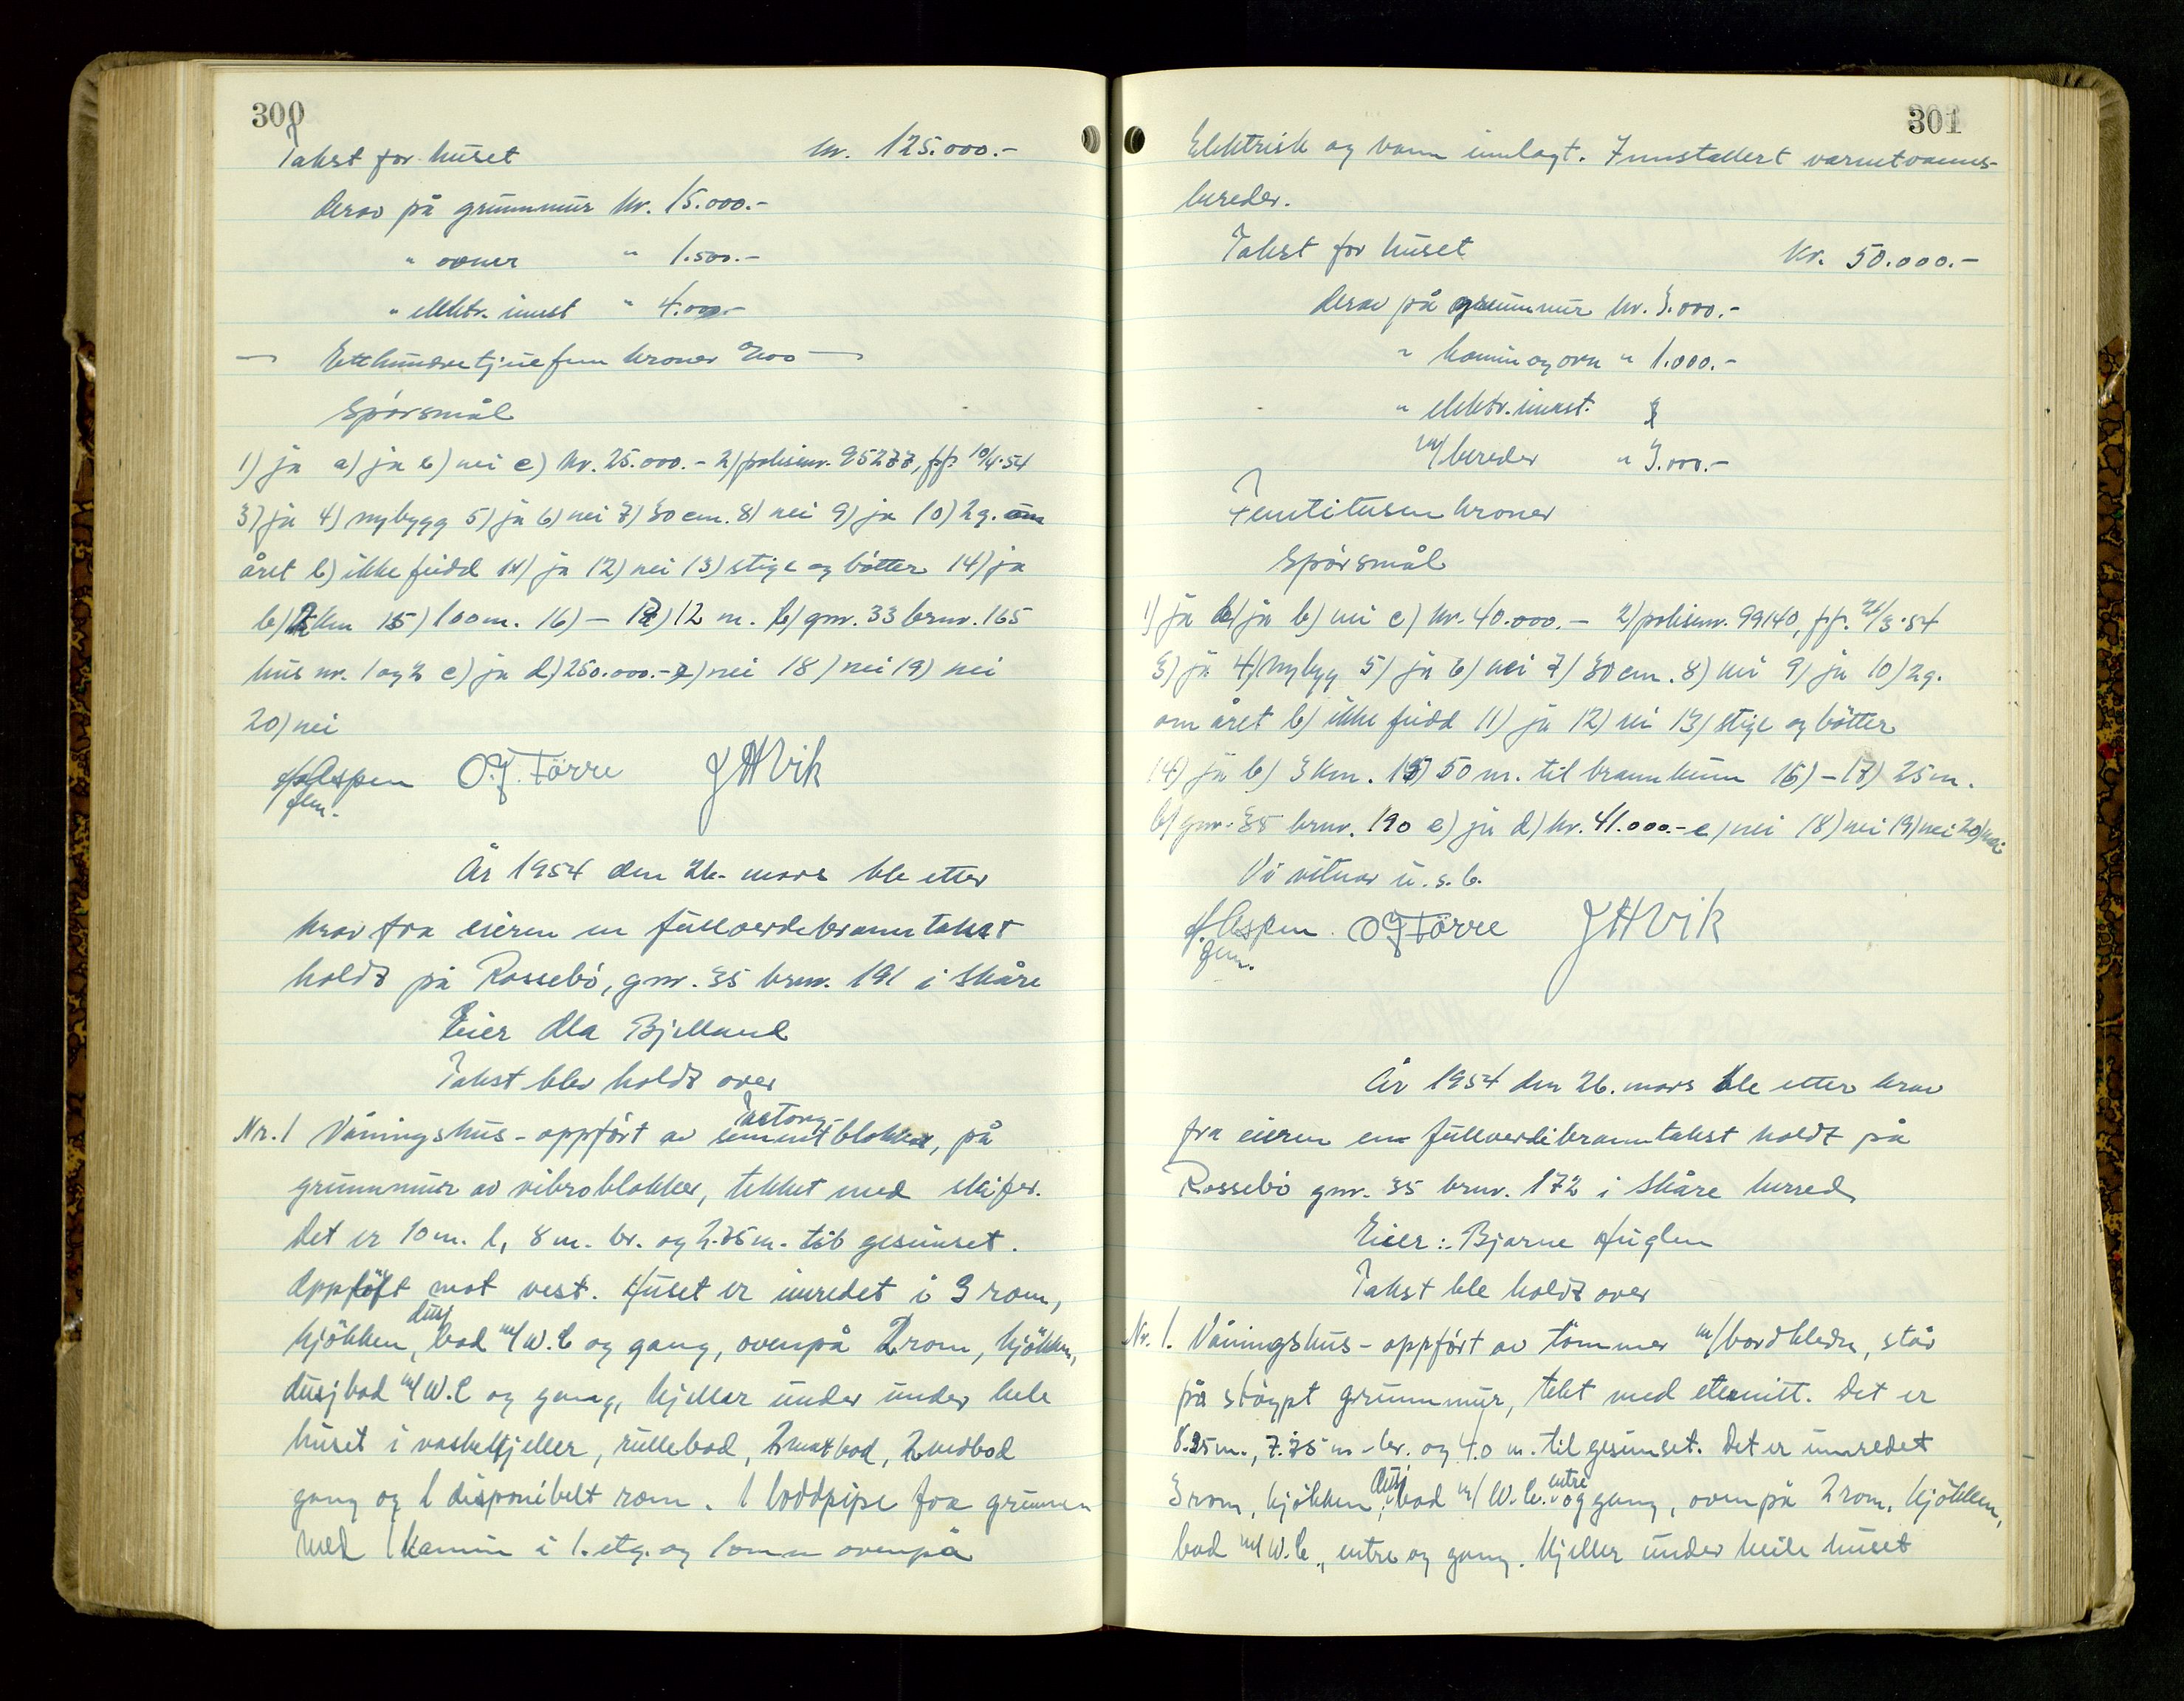 300
Takst for huset kr. 125.000.-
Derav på grunnmur kr. 15.000.-
" ovner " 1.500.-
" elektr. innst " 4.000.-
— Etthundretjuefem kroner 0/00 —
Spörsmål
1) ja a) ja b) nei c) kr. 25.000.- 2) polisenr. 95277, f.f. 10/4-54
3) ja 4) nybygg 5) ja 6) nei 7) 30 cm. 8) nei 9) ja 10) 2 g. om
året b) ikke feidd 11) ja 12) nei 13) stige og bötter 14) ja
b) 2 km 15) 100 m. 16) — 17) 12 m. b) gnr. 33 brnr. 165
hus nr. 1 og 2 c) ja d) 250.000.- e) nei 18) nei 19) nei
20) nei
Aspen O.J. Förre J H Vik
fm.
År 1954 den 26. mars ble etter
krav fra eieren en fullverdibranntakst
holdt på Rossebö, gnr. 35 brnr. 191 i Skåre
Eier Ola Bjelland
Takst blev holdt over
Nr. 1 Våningshus - oppfört av sement blokker, på
grunnmur av vibroblokker, tekket med skifer.
Det er 10 m. l, 8 m. br. og 2.75 m. til gesimset.
Oppløft mot vest. Huset er innredet i 3 rom,
dusj
kjökken, bad m/ W.C og gang, ovenpå 2 rom, kjökken,
dusjbad m/ W.C og gang, kjeller under under hele
huset i vaskekjeller, rullebod, 2 matbod, 2 vedbod
gang og 1 disponibelt rom. 1 loddpipe fra grunnen
med 1 kamin i 1. etg. og 1 omn ovenpå
301
Elektrisk og vann innlagt. Innstallert varmtvanns-
bereder.
Takst for huset kr. 50.000.-
Derav på grunnmur kr. 3.000.-
" kamin og ovn " 1.000.-
" elektr. innst.
m/bereder " 3.000.-
Femtitusen kroner
Spörsmål
1) ja a) ja b) nei c) kr. 40.000.- 2) polisenr. 99140, f.f. 21/3-54
3) ja 4) Nybyg 5) ja 6) nei 7) 30 cm. 8) nei 9) ja 10) 2 g.
om året b) ikke feidd 11) ja 12) nei 13) stige og bötter
14) ja b) 3 km. 15) 50 m. til brannkum 16) - 17) 25 m.
b) gnr. 35 brnr. 190 c) ja d) kr. 41.000.- e) nei 18) nei 19) nei 20) nei
Vi vitner u. s. b.
Aspen O J Förre J H Vik
fm.
År 1954 den 26. mars ble etter krav
fra eieren en fullverdibranntakst holdt på
Rossebö gnr. 35 brnr. 172 i Skåre herred
Eier: Bjarne Huglen
Takst ble holdt over
Nr. 1. Våningshus - oppfört av tömmer m/bordkledn, står
på stöypt grunnmur, tekt med eternitt. Det er
8.25 m., 7.75 m - br. og 4.0 m. til gesimset. Det er innredet
dusj entre
3 rom, kjökken, bad m/ W.C. og gang, ovenpå 2 rom, kjökken,
bad m/ W.C., entre og gang. Kjeller under heile huset